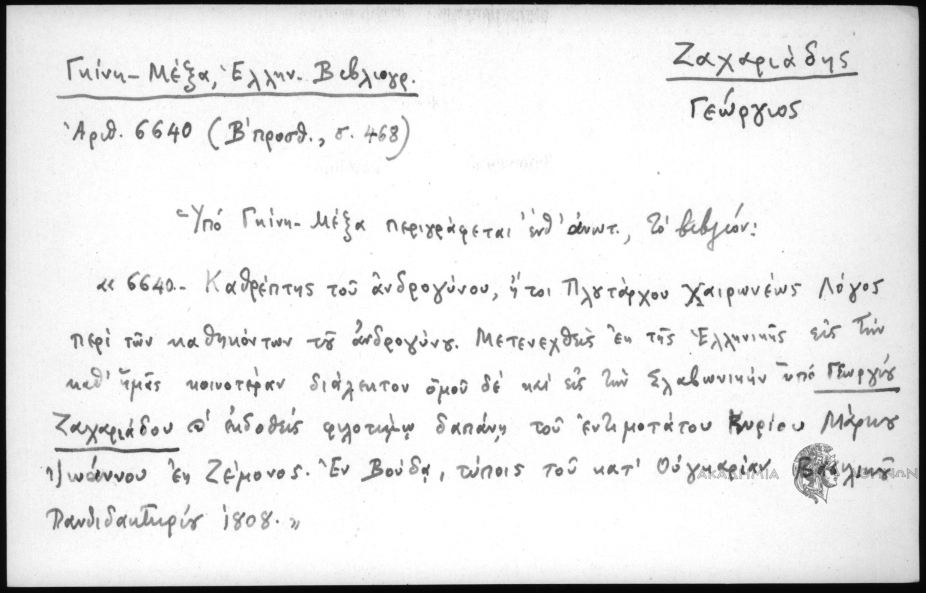 Ζαχαριάδης
Γεώργιος
Γκίνη-Μέξα, Ἑλλην. Βιβλιογρ.
Ἀριθ. 6640 (Β' προσθ., σ. 468)
Ὑπό Γκίνη-Μέξα περιγράφεται ἐνθ' ἀνωτ., τό βιβλίον:
« 6640.- Καθρέπτης τοῦ ἀνδρογύνου, ἤτοι Πλουτάρχου Χαιρωνέως Λόγος
περί τῶν καθηκόντων τοῦ ἀνδρογύνου. Μετενεχθεὶς ἐκ τῆς Ἑλληνικῆς εἰς τὴν
καθ' ἡμᾶς κοινοτέραν διάλεκτον ὁμοῦ δὲ καὶ εἰς τὴν Σλαβωνικὴν ὑπό Γεωργίου
Ζαχαριάδου ἐκδοθεὶς φιλοτίμῳ δαπάνῃ τοῦ ἐντιμοτάτου Κυρίου Μάρκου
Ἰωάννου ἐκ Ζέμονος. Ἐν Βούδᾳ, τύποις τοῦ κατ' Οὐγκαρίαν Βασιλικοῦ
Πανδιδακτηρίου 1808. »
ΑΚΑΔΗΜΙΑ ΑΘΗΝΩΝ